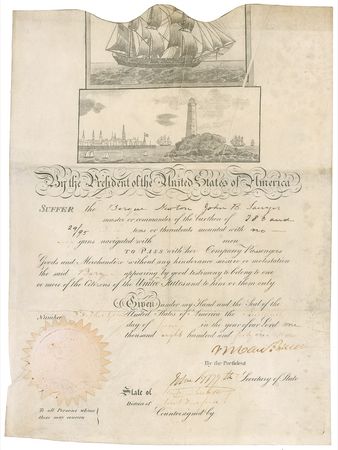 By the President of the United States of America
SUFFER the Barque John B.
master or commander of the burthen of 386 and
29/95 tons or thereabouts mounted with no
guns navigated with men
TO PASS with her Company Passengers
Goods and Merchandize without any hinderance seisure or molestation
the said Barque appearing by good testimony to belong to one
or more of the Citizens of the United States and to him or them only
Given under my Hand and the Seal of the
Number United States of America the
day of in the year of our Lord one
thousand eight hundred and
By the President
Secretary of State
State of
District of
Countersigned by
To all Persons whom
these may concern